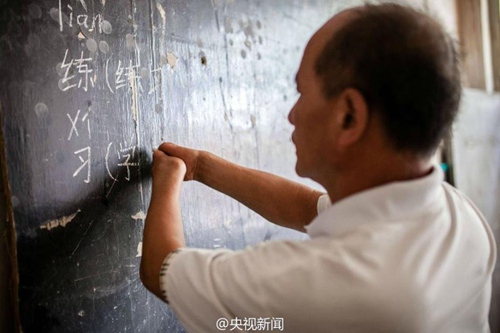 lian
练(练一
xi
习(学
@央视新闻